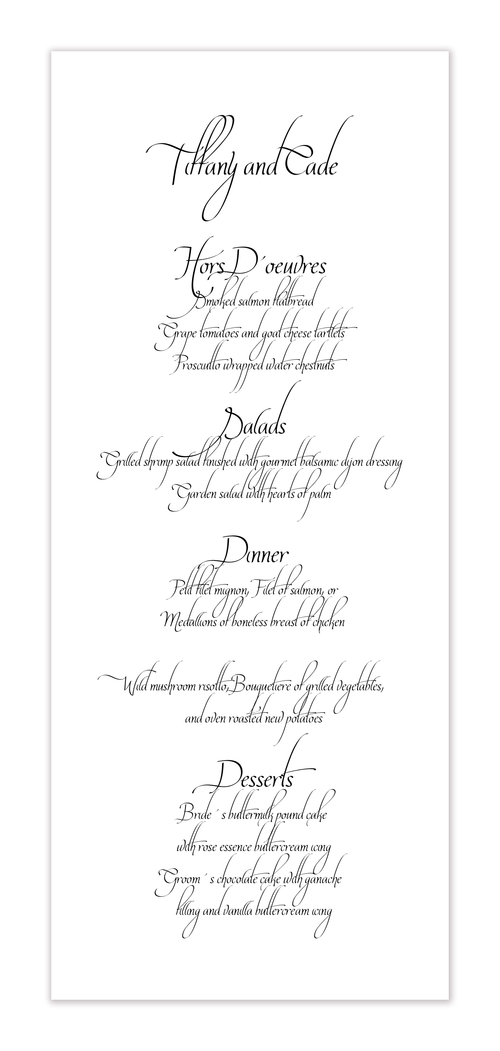 Tiffany and Cade
Hors D'oeuvres
Smoked salmon flatbread
Grape tomatoes and goat cheese tartlets
Proscuitto wrapped water chestnuts
Salads
Grilled shrimp salad finished with gourmet balsamic dijon dressing
Garden salad with hearts of palm
Dinner
Petit filet mignon, Filet of salmon, or
Medallions of boneless breast of chicken
Wild mushroom risotto, Bouquetiere of grilled vegetables,
and oven roasted new potatoes
Desserts
Bride's buttermilk pound cake
with rose essence buttercream icing
Groom's chocolate cake with ganache
filling and vanilla buttercream icing